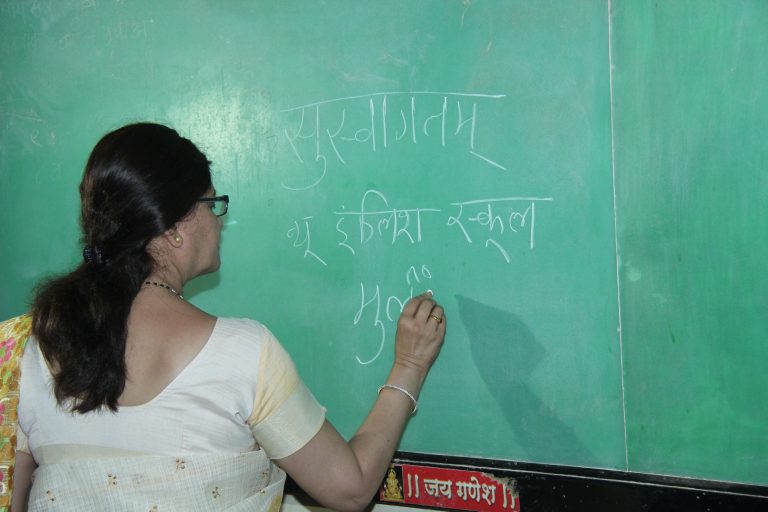 सुस्वागतम्
न्यू इंग्लिश स्कूल
|| जय गणेश ||